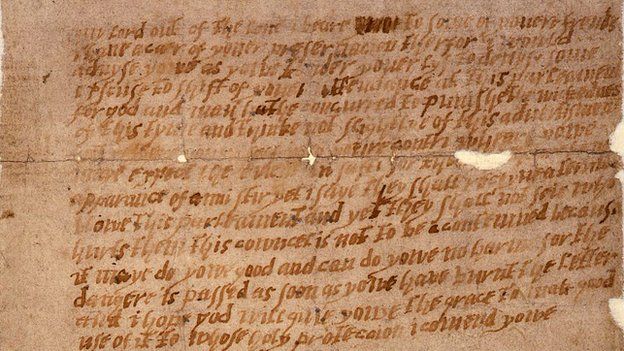 my lord out of the love i beare to some of youere frends
i have a caer of youer preseruacion therfor i would
advyse yowe as yowe tender youer lyf to devyse some
excuse to shift of youer attendance at this parleament
for god and man hathe concurred to punishe the wickednes
of this tyme and thinke not slightlye of this advertisment
youre contri wheare yowe
maye expect the in safti for
apparance of anni stir yet i saye they shall receyve a terribel
blowe this parleament and yet they shall not seie who
hurts them this cowncel is not to be contemned because
it maye do yowe good and can do yowe no harme for the
dangere is passed as soon as yowe have burnt the letter
and i hope god will give yowe the grace to mak good
use of it to whose holy proteccion i comend yowe